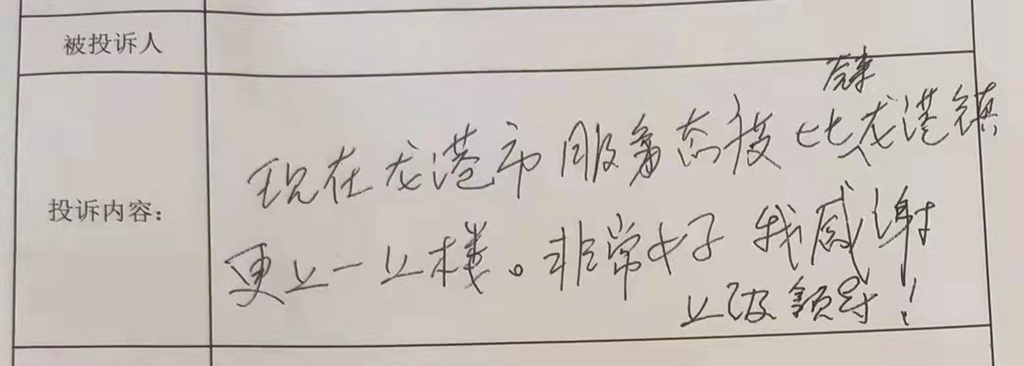 被投诉人
投诉内容：
现在龙港市服务态度比原来龙港镇
更上一层楼。非常好 我感谢
上级领导！